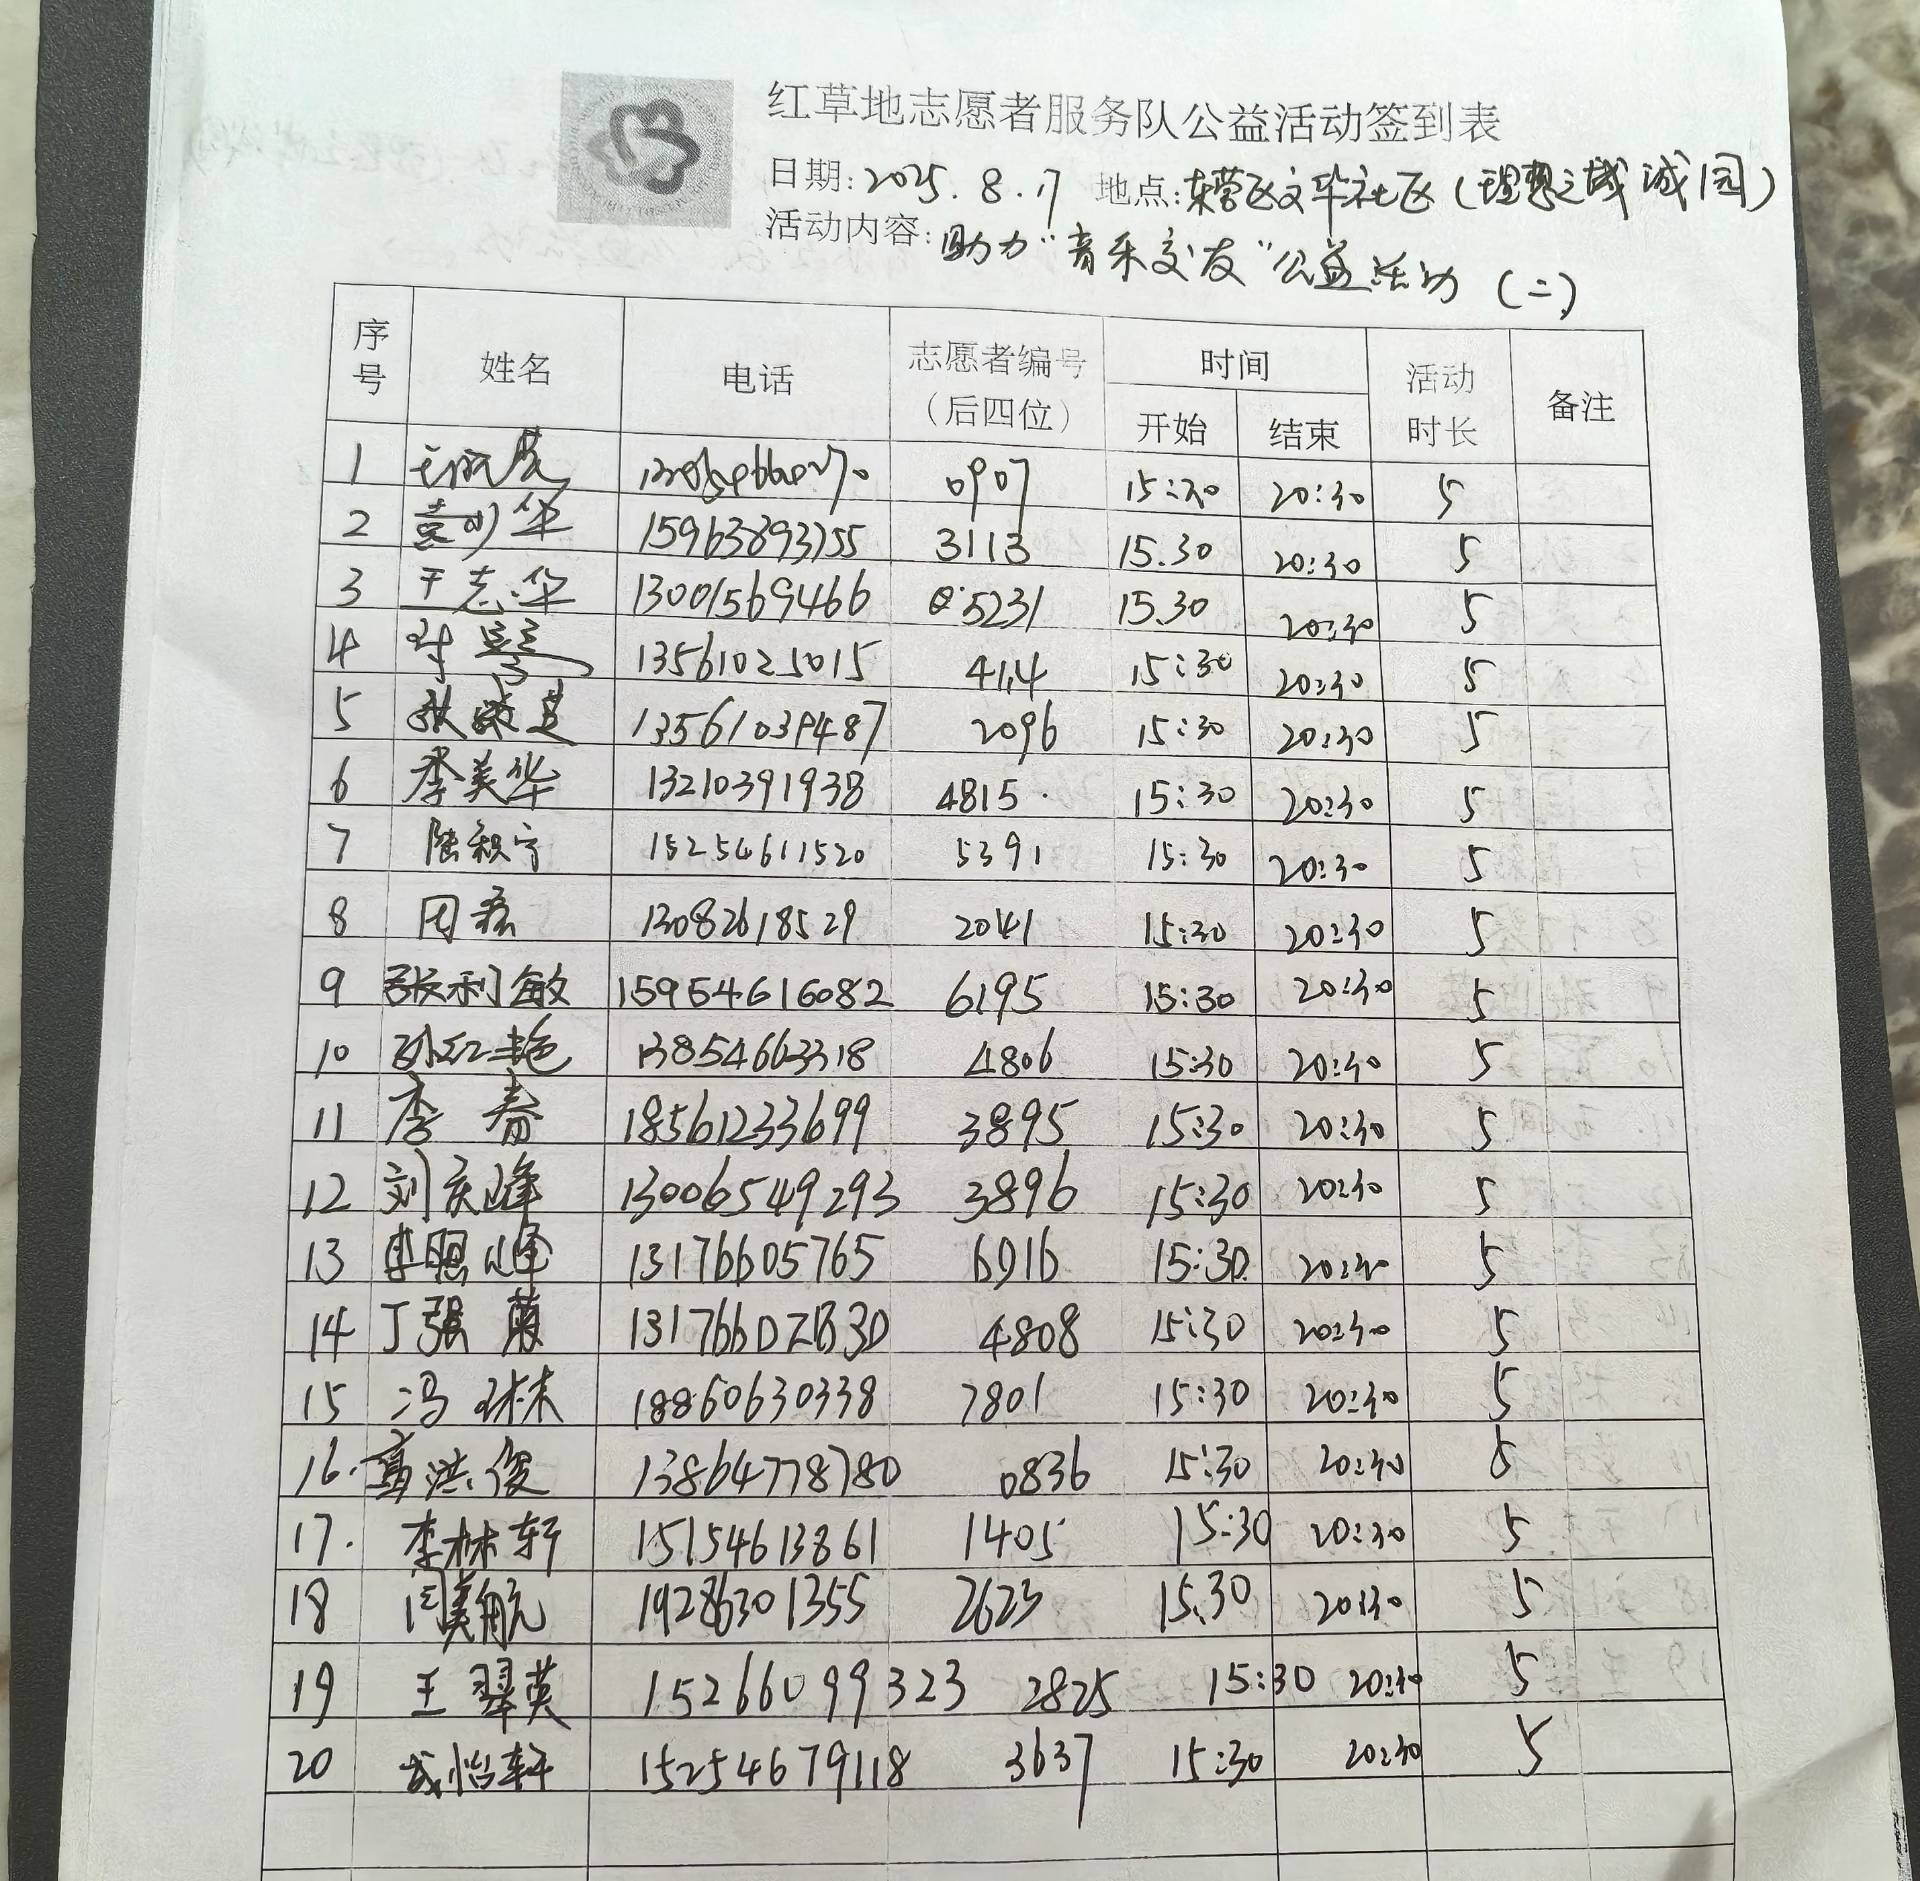 红草地志愿者服务队公益活动签到表
日期: 2025.8.17 地点: 东营区文华社区(理想之城诚园)
活动内容: 助力"音乐交友"公益活动(二)
序号 姓名 电话 志愿者编号(后四位) 时间 开始 结束 活动时长 备注
1 0907 15:30 20:30 5
2 华 15963893755 3113 15.30 20:30 5
3 王志华 13001569466 5231 15.30 20:30 5
4 13561025015 4114 15:30 20:30 5
5 张 英 13561039487 2096 15:30 20:30 5
6 李美华 13210391938 4815. 15:30 20:30 5
7 陆积宁 15254611520 5391 15:30 20:30 5
8 周 13082618529 2041 15:30 20:30 5
9 张利敏 15954616082 6195 15:30 20:30 5
10 孙红艳 13854663318 4806 15:30 20:30 5
11 李春 18561233699 3895 15:30 20:30 5
12 刘庆峰 13006549293 3896 15:30 20:30 5
13 李照峰 13176605765 6916 15:30 20:30 5
14 丁强 4808 15:30 20:30 5
15 冯琳 18860630338 7801 15:30 20:30 5
16. 高洪俊 13864778780 0836 15:30 20:30 5
17. 李林轩 15154613861 1405 15:30 20:30 5
18 闫美航 19286301355 2623 15.30 20:30 5
19 王翠英 15266099323 2825 15:30 20:30 5
20 成怡轩 15254679118 3637 15:30 20:30 5